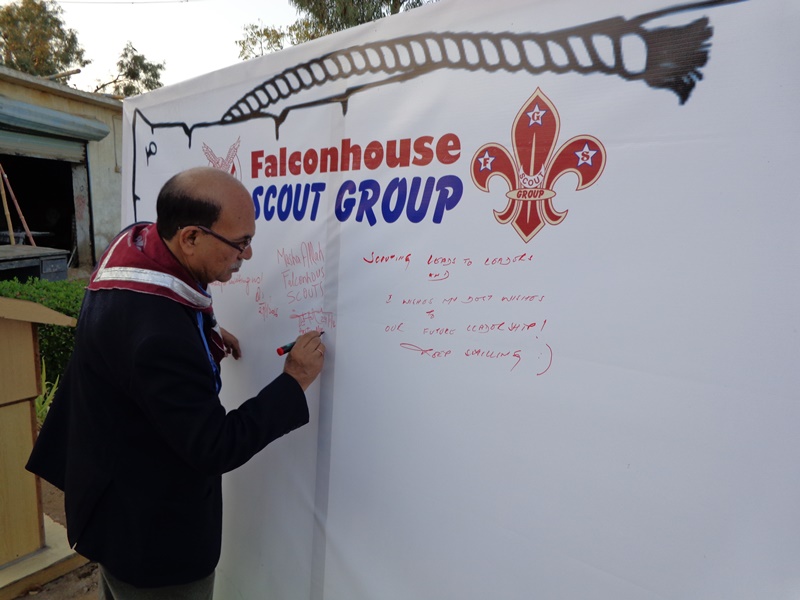 Falconhouse
SCOUT GROUP
F
G
S
SCOUT
GROUP
MashaAllah
Falconhous
SCOUTS
Scouting leads to leaders
and
I wishes my best wishes
to
our future leadership!
Keep smiling :)